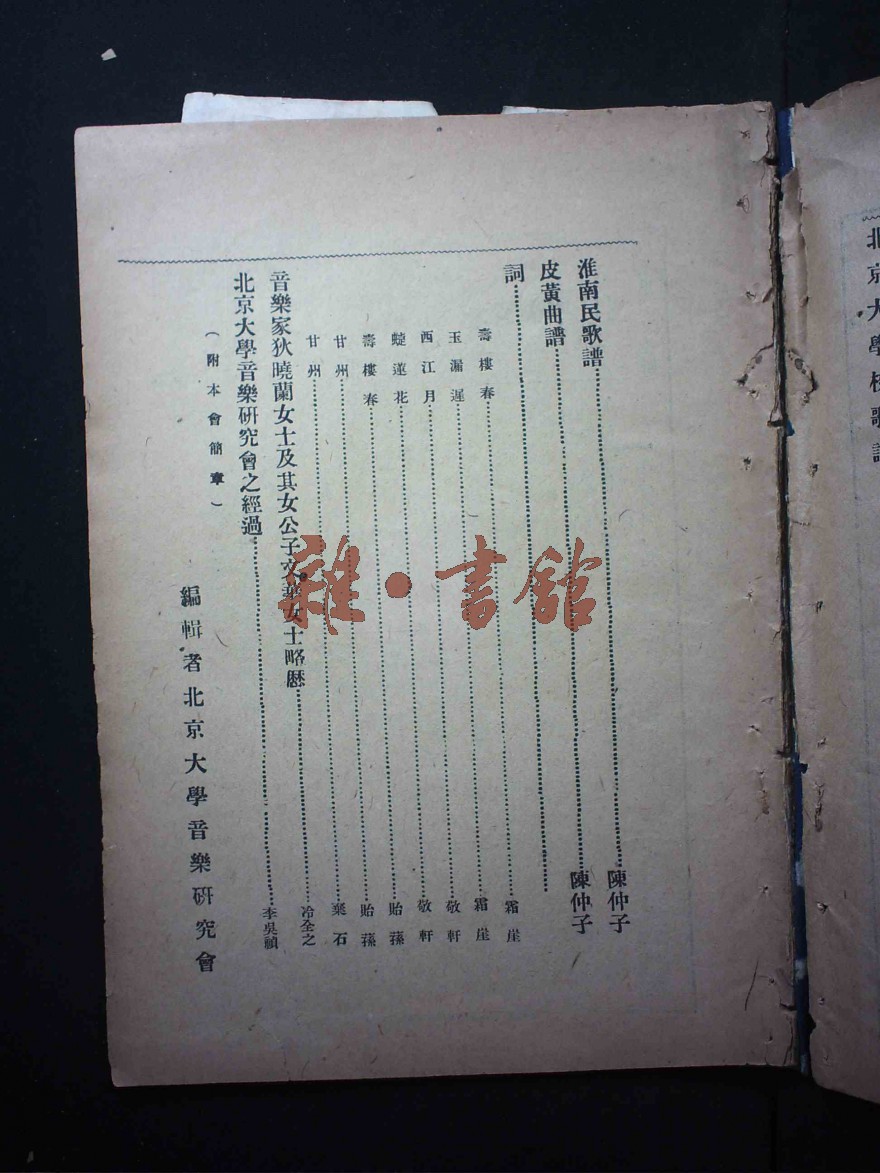 北京大學校歌
淮南民歌譜……陳仲子
皮黃曲譜……陳仲子
詞……
壽樓春……霜崖
玉漏遲……霜崖
西江月……敬軒
蜨蓮花……敬軒
壽樓春……貽蓀
甘州……貽蓀
甘州……棄石
音樂家狄曉蘭女士及其女公子文華女士略歷……冷全之
北京大學音樂研究會之經過……李吳禎
（附本會簡章）
編輯者北京大學音樂研究會
雜·書館